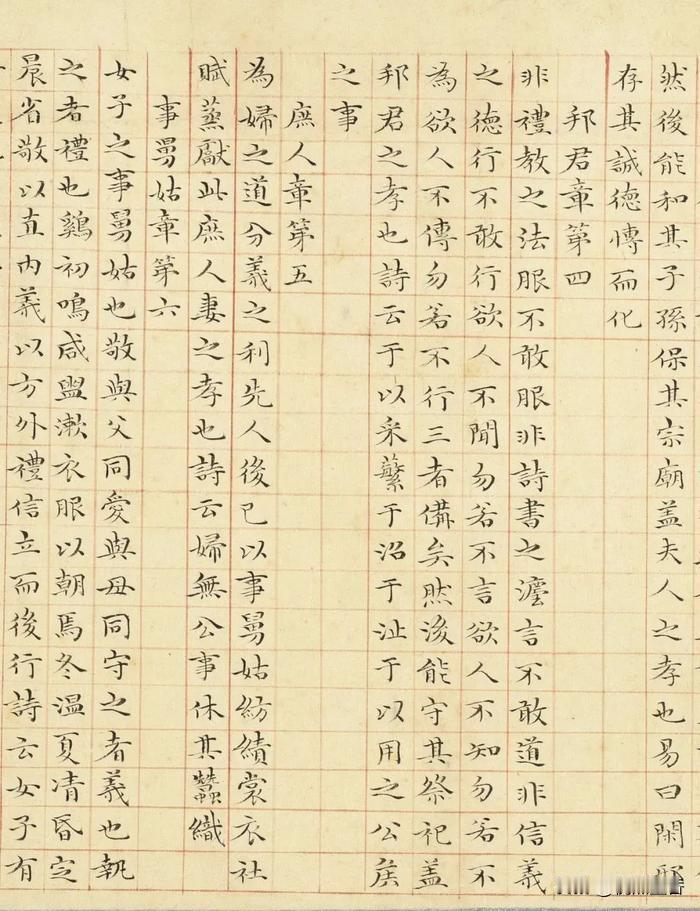 然後能和其子孫保其宗廟盖夫人之孝也易曰閑邪
存其誠德愽而化
邦君章第四
非禮教之法服不敢服非詩書之灋言不敢道非信義
之德行不敢行欲人不聞勿若不言欲人不知勿若不
為欲人不傳勿若不行三者俻矣然後能守其祭祀盖
邦君之孝也詩云于以采蘩于沼于沚于以用之公侯
之事
庶人章第五
為婦之道分義之利先人後已以事舅姑紡績裳衣社
賦蒸獻此庶人妻之孝也詩云婦無公事休其蠶織
事舅姑章第六
女子之事舅姑也敬與父同愛與母同守之者義也執
之者禮也鷄初鳴咸盥漱衣服以朝焉冬溫夏凊昏定
晨省敬以直内義以方外禮信立而後行詩云女子有